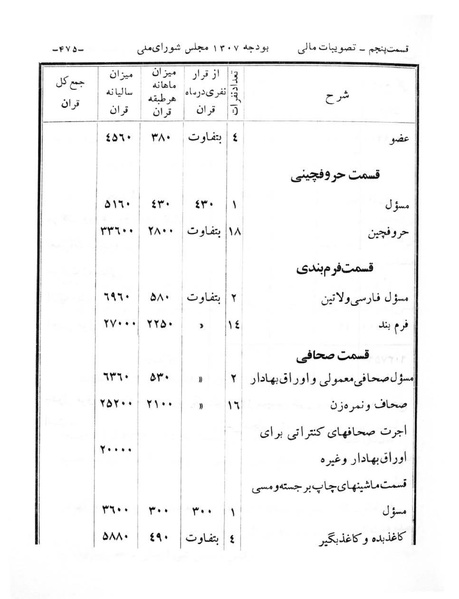 قسمت پنجم - تصویبات مالی بودجه ۱۳۰۷ مجلس شورای ملی -۴۷۵-
شرح تعداد نفرات از قرار نفری در ماه قران میزان ماهانه هر طبقه قران میزان سالیانه قران جمع کل قران
عضو ۴ بتفاوت ۳۸۰ ۴۵۶۰
قسمت حروفچینی
مسؤل ۱ ۴۳۰ ۴۳۰ ۵۱۶۰
حروفچین ۱۸ بتفاوت ۲۸۰۰ ۳۳۶۰۰
قسمت فرم بندی
مسؤل فارسی ولاتین ۲ بتفاوت ۵۸۰ ۶۹۶۰
فرم بند ۱۴ » ۲۲۵۰ ۲۷۰۰۰
قسمت صحافی
مسؤل صحافی معمولی و اوراق بهادار ۲ » ۵۳۰ ۶۳۶۰
صحاف و نمره زن ۱۶ » ۲۱۰۰ ۲۵۲۰۰
اجرت صحافهای کنتراتی برای
اوراق بهادار وغیره ۲۰۰۰۰
قسمت ماشینهای چاپ برجسته و مسی
مسؤل ۱ ۳۰۰ ۳۰۰ ۳۶۰۰
کاغذبده و کاغذبگیر ۴ بتفاوت ۴۹۰ ۵۸۸۰